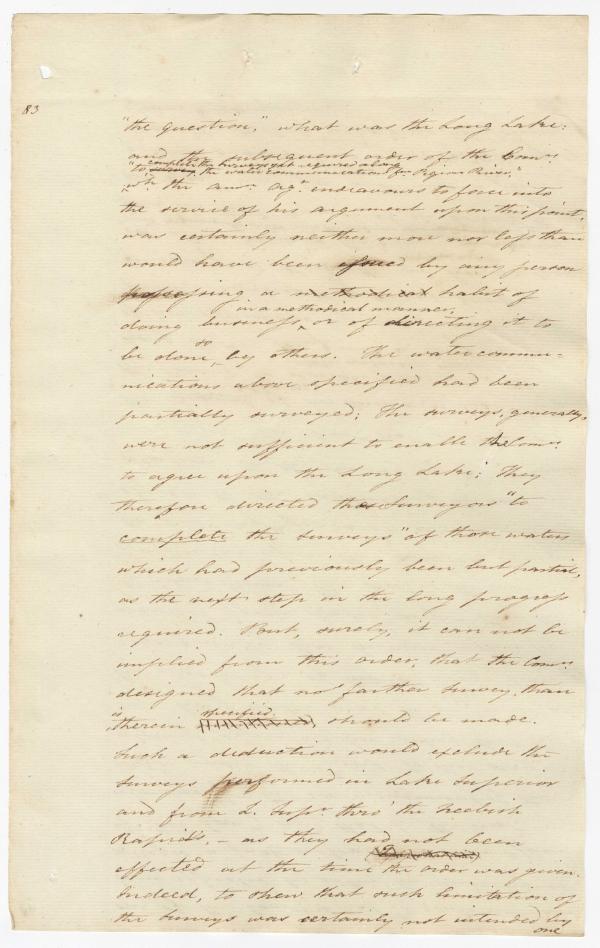 83
"the question," what was the Long Lake:
and the subsequent order of the Comrs.
"to complete the surveys yet required along
survey the water communications fm Pigeon River,"
wh. the amn. agt. endeavours to force into
the service of his argument upon this point,
was certainly neither more nor less than
would have been issued by any person
professing a methodical habit of
in a methodical manner,
doing business, or of directing it to
so
be done, by others. The water commu-
nications above specified had been
partially surveyed; The surveys, generally,
were not sufficient to enable the Comrs.
to agree upon the Long Lake; They
therefore directed the Surveyors "to
complete the surveys" of those waters
which had previously been but partial,
as the next step in the long progress
required. But, surely, it can not be
implied from this order, that the Comrs.
designed that no farther survey, than
is specified
therein should be made.
Such a deduction would exclude the
surveys performed in Lake Superior
and from L. Supr. thro' the Neebish
Rapids, – as they had not been
effected at the time the order was given.
Indeed, to shew that such limitation of
the surveys was certainly not intended by
one